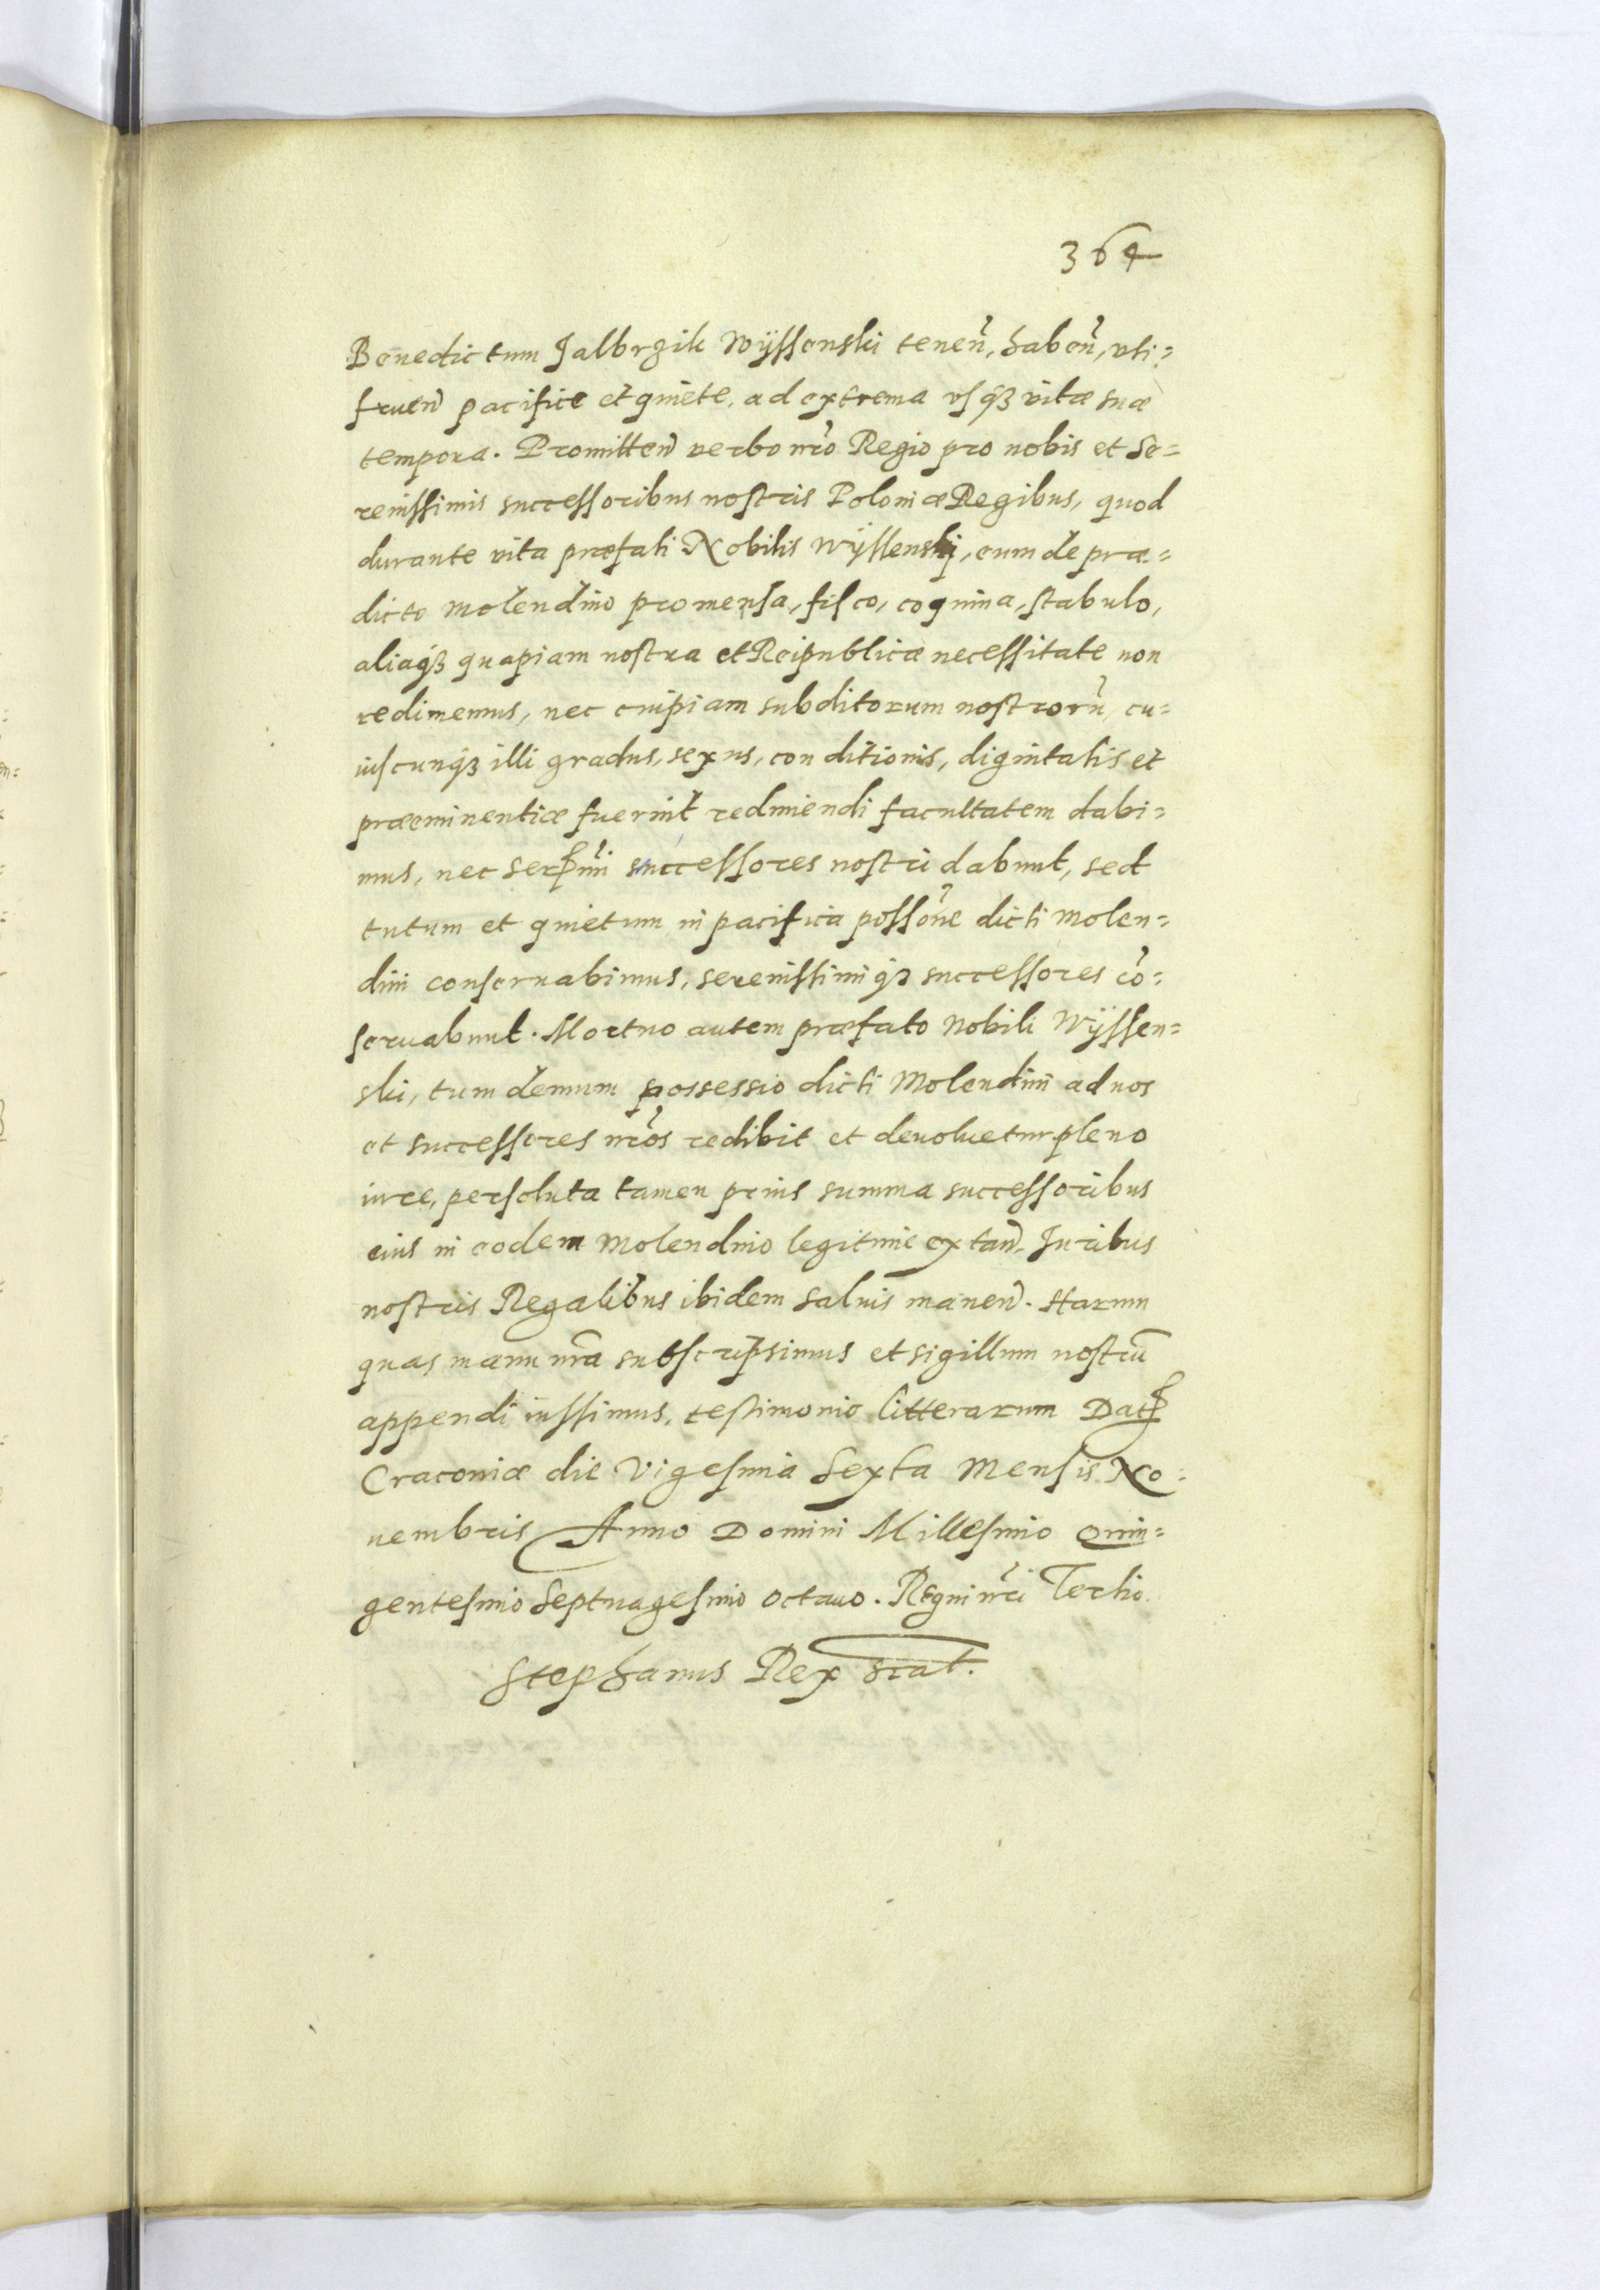 364
Benedictum Jalbrzik Wÿssenski tenen̄, haben̄, uti=
fruen̄ pacifice et quiete, ad extrema usq₃ vitæ suæ
tempora. Promitten̄ verbo nr̄o Regio pro nobis et Se=
renissimis successoribus nostris Poloniæ Regibus, quod
durante vita præfati Nobilis Wÿssenski, eum de præ=
dicto molendino pro mensa, fisco, coquina, stabulo,
aliaq₃ quapiam nostra et Reipublicæ necessitate non
redimemus, nec cuipiam subditorum nostrorū, cu=
iuscunq₃ illi gradus, sexus, conditionis, dignitatis et
præeminentiæ fuerint redimendi facultatem dabi=
mus, nec Ser̄mi successores nostri dabunt, sed
tutum et quietum in pacifica possōne dicti Molen=
dini conseruabimus, serenissimiq₃ successores cō=
seruabunt. Mortuo autem præfato Nobili Wÿssen=
ski, tum demum possessio dicti Molendini ad nos
et successores nr̄os redibit et deuoluetur pleno
iure, persoluta tamen prius summa successoribus
eius in eodem Molendino legitime extan̄. Juribus
nostris Regalibus ibidem saluis manen̄. Harum
quas manu nr̄a subscripsimus et sigillum nostrū
appendi iussimus, testimonio litterarum Dat̄
Cracouiæ die Vigesima Sexta Mensis No=
uembris Anno Domini Millesimo Quin=
gentesimo Septuagesimo octauo. Regni nr̄i Tertio.
Stephanus Rex sc̄at.